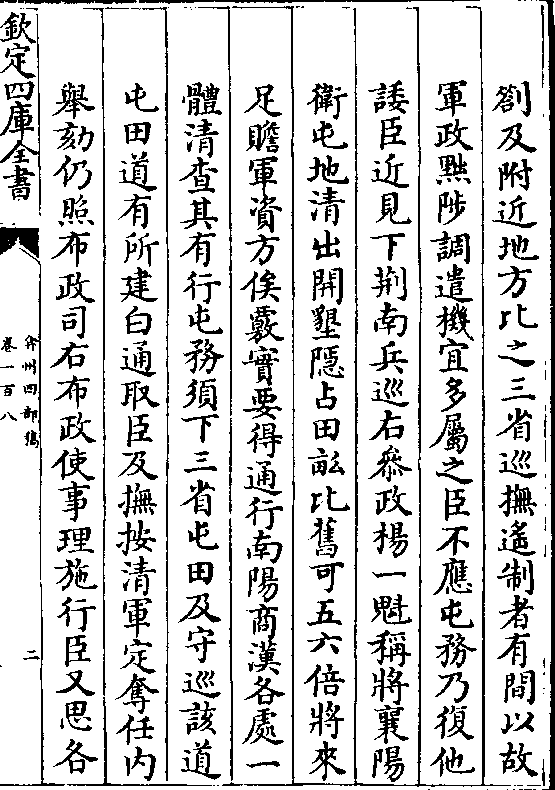 劄及附近地方比之三省巡撫遙制者有間以故
軍政黜陟調遣機宜多屬之臣不應屯務乃復他
諉臣近見下荆南兵巡右叅政楊一魁稱將襄陽
衛屯地清出開墾隱占田畆比舊可五六倍將來
足贍軍資方俟覈實要得通行南陽商漢各處一
體清查其有行屯務須下三省屯田及守巡該道
屯田道有所建白通取臣及撫按清軍定奪任内
舉劾仍照布政司右布政使事理施行臣又思各
欽定四庫全書
弇州四部稿
卷一百八
二